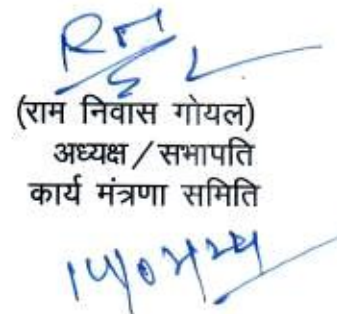 (राम निवास गोयल)
अध्यक्ष/सभापति
कार्य मंत्रणा समिति